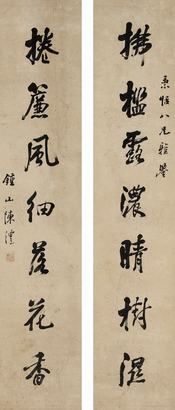 拂檻露濃晴樹濕
八兄雅鑒
捲簾風細落花香
鍾山陳澧